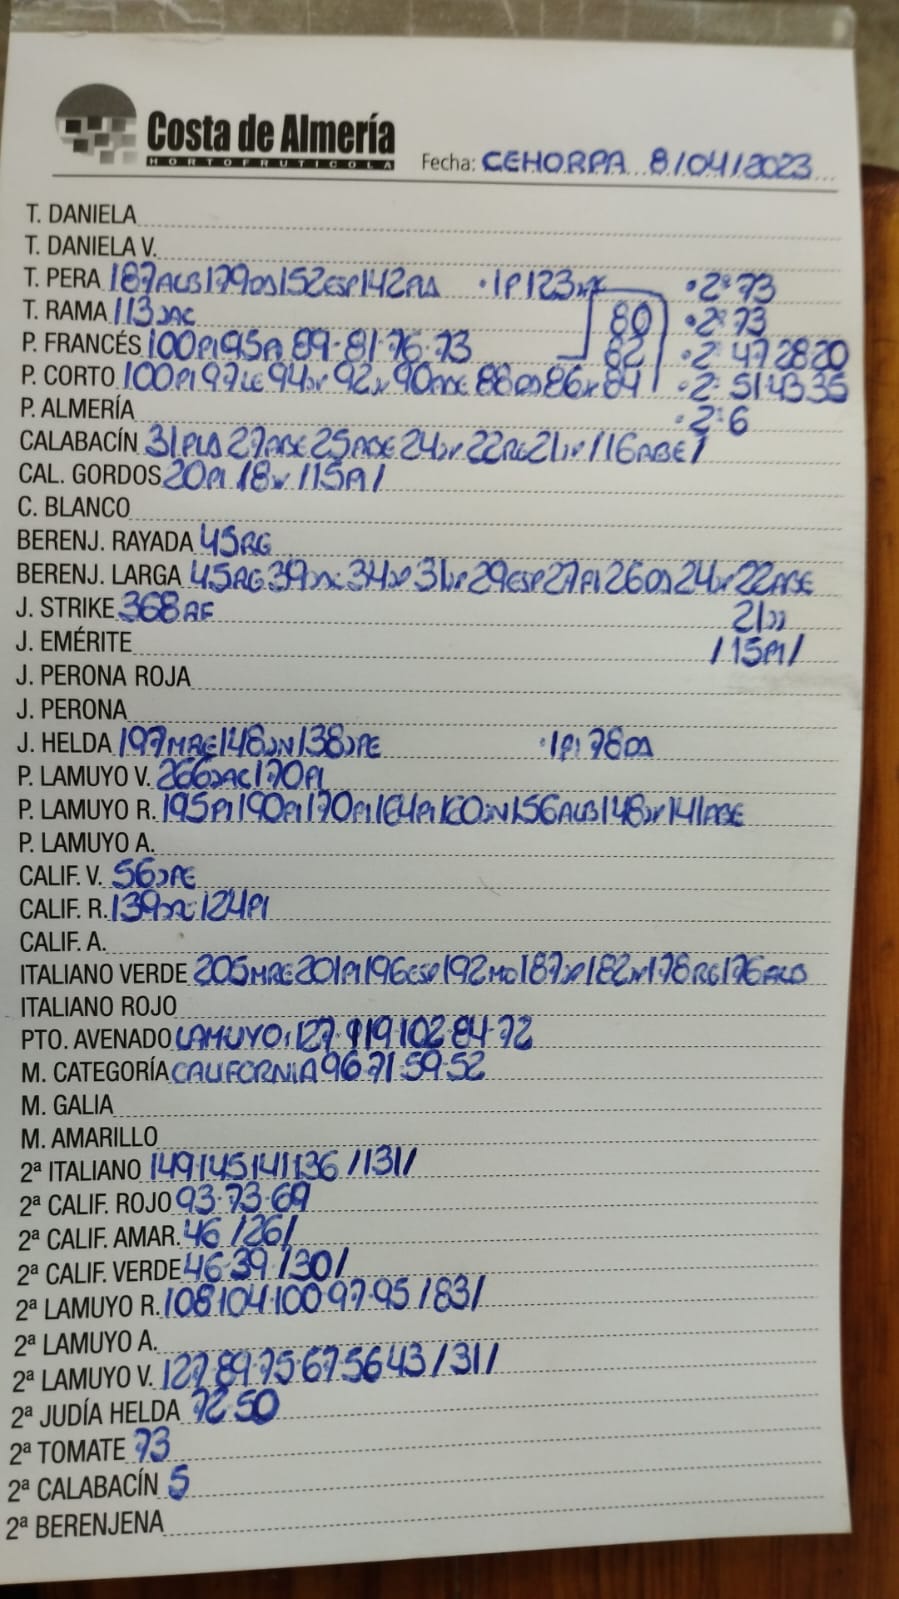 Costa de Almería
HORTOFRUTICOLA
Fecha: CEHORPA 8/04/2023
T. DANIELA
T. DANIELA V.
T. PERA 187ALB 179DS 152ESP 142PLA ·1P 123 ·2ª 73
T. RAMA 113JAC 80 ·2ª 73
P. FRANCÉS 100PI 95PI 89·81·76·73 82 ·2ª 47 28 20
P. CORTO 100PI 97LE 94 92 90ABE 88DS 86 84 ·2ª 51 43 35
P. ALMERÍA ·2ª 6
CALABACÍN 31PLA 27ABE 25ABE 24 22RG 21 /16ABE/
CAL. GORDOS 20PI 18 /15PI/
C. BLANCO
BERENJ. RAYADA 45RG
BERENJ. LARGA 45RG 39 34 31 29ESP 27PI 26DS 24 22ABE
J. STRIKE 368AF 21
J. EMÉRITE /15PI/
J. PERONA ROJA
J. PERONA
J. HELDA 197MRE 148JN 138JPE ·1P: 78DS
P. LAMUYO V. 266JAC 170PI
P. LAMUYO R. 195PI 190PI 170PI 164PI 160JN 156ALB 148 141ABE
P. LAMUYO A.
CALIF. V. 56JPE
CALIF. R. 139 124PI
CALIF. A.
ITALIANO VERDE 205MRE 201PI 196ESP 192MO 187 182 178RG 176ALB
ITALIANO ROJO
PTO. AVENADO LAMUYO: 127·119·102·84·72
M. CATEGORÍA CALIFORNIA 96·71·59·52
M. GALIA
M. AMARILLO
2ª ITALIANO 149·145·141·136 /131/
2ª CALIF. ROJO 93·73·69
2ª CALIF. AMAR. 46 /26/
2ª CALIF. VERDE 46·39 /30/
2ª LAMUYO R. 108·104·100·97·95 /83/
2ª LAMUYO A.
2ª LAMUYO V. 127·89·75·67·56·43 /31/
2ª JUDÍA HELDA 72·50
2ª TOMATE 73
2ª CALABACÍN 5
2ª BERENJENA